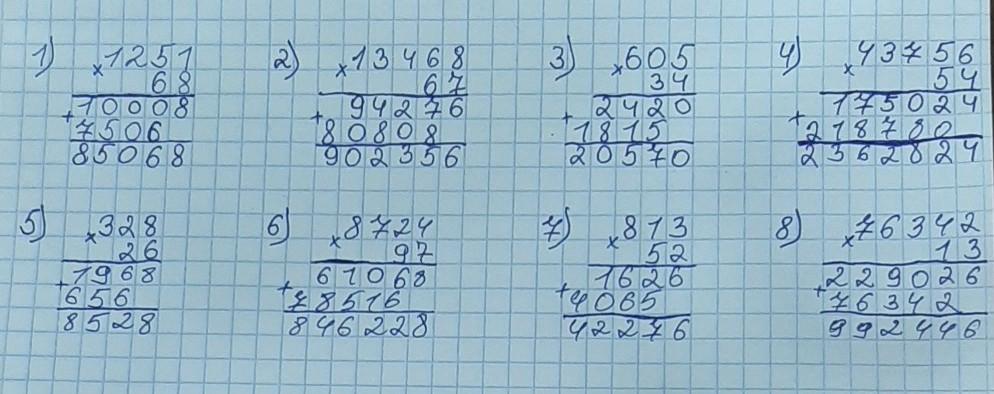 1) ×1251
68
+10008
7506
85068
2) ×13468
67
+94276
80808
902356
3) ×605
34
+2420
1815
20570
4) ×43756
54
+175024
218780
2362824
5) ×328
26
+1968
656
8528
6) ×8724
97
+61068
78516
846228
7) ×813
52
+1626
4065
42276
8) ×76342
13
+229026
76342
992446